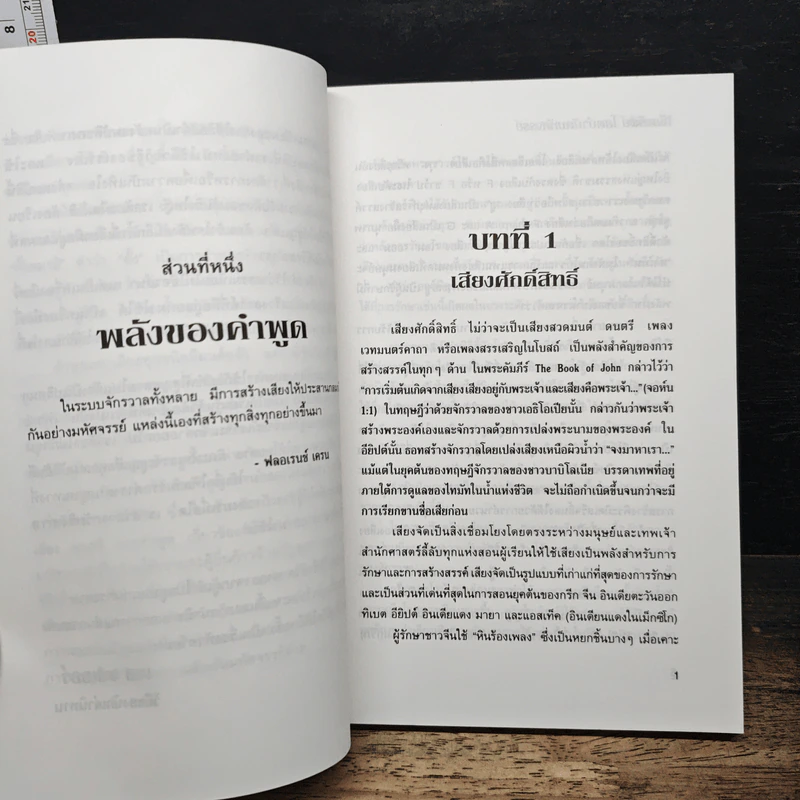 8
21
20
ส่วนที่หนึ่ง
พลังของคำพูด
ในระบบจักรวาลทั้งหลาย มีการสร้างเสียงให้ประสานกลม
กันอย่างมหัศจรรย์ แหล่งนี้เองที่สร้างทุกสิ่งทุกอย่างขึ้นมา
- ฟลอเรนซ์ เครน
บทที่ 1
เสียงศักดิ์สิทธิ์
เสียงศักดิ์สิทธิ์ ไม่ว่าจะเป็นเสียงสวดมนต์ ดนตรี เพลง
เวทมนตร์คาถา หรือเพลงสรรเสริญในโบสถ์ เป็นพลังสำคัญของการ
สร้างสรรค์ในทุกๆ ด้าน ในพระคัมภีร์ The Book of John กล่าวไว้ว่า
"การเริ่มต้นเกิดจากเสียง เสียงอยู่กับพระเจ้า และเสียงคือพระเจ้า..." (จอห์น
1:1) ในทฤษฎีว่าด้วยจักรวาลของชาวเอธิโอเปียนั้น กล่าวกันว่าพระเจ้า
สร้างพระองค์เองและจักรวาลด้วยการเปล่งพระนามของพระองค์ ใน
อียิปต์นั้น ธอทสร้างจักรวาลโดยเปล่งเสียงเหนือผิวน้ำว่า "จงมาหาเรา..."
แม้แต่ในยุคต้นของทฤษฎีจักรวาลของชาวบาบิโลเนีย บรรดาเทพที่อยู่
ภายใต้การดูแลของไทมัทในน้ำแห่งชีวิต จะไม่ถือกำเนิดขึ้นจนกว่าจะมี
การเรียกขานชื่อเสียก่อน
เสียงจัดเป็นสิ่งเชื่อมโยงโดยตรงระหว่างมนุษย์และเทพเจ้า
สำนักศาสตร์ลี้ลับทุกแห่งสอนผู้เรียนให้ใช้เสียงเป็นพลังสำหรับการ
รักษาและการสร้างสรรค์ เสียงจัดเป็นรูปแบบที่เก่าแก่ที่สุดของการรักษา
และเป็นส่วนที่เด่นที่สุดในการสอนยุคต้นของกรีก จีน อินเดียตะวันออก
ทิเบต อียิปต์ อินเดียแดง มายา และแอสเท็ค (อินเดียนแดงในเม็กซิโก)
ผู้รักษาชาวจีนใช้ "หินร้องเพลง" ซึ่งเป็นหยกชิ้นบางๆ เมื่อเคาะ
1